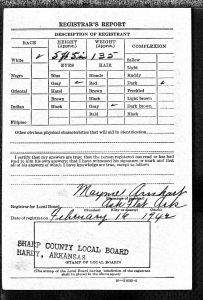 REGISTRAR'S REPORT
DESCRIPTION OF REGISTRANT
RACE HEIGHT (Approx.) WEIGHT (Approx.) COMPLEXION
White ✓ 5 ft 5 in 135 Sallow
Light
EYES HAIR Ruddy
Negro Blue Blonde Dark ✓
Gray ✓ Red Freckled
Oriental Hazel Brown Light brown
Brown Black Dark brown
Indian Black Gray ✓ Black
Bald
Filipino
Other obvious physical characteristics that will aid in identification
I certify that my answers are true; that the person registered has read or has had
read to him his own answers; that I have witnessed his signature or mark and that
all of his answers of which I have knowledge are true, except as follows:
Registrar for Local Board
Ark
Date of registration February 16 1942
SHARP COUNTY LOCAL BOARD
HARDY, ARKANSAS
(STAMP OF LOCAL BOARD)
(The stamp of the Local Board having jurisdiction of the registrant
shall be placed in the above space.)